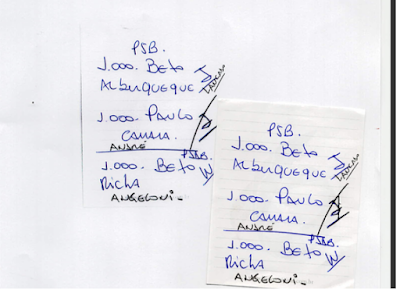 PSB.
1.000. Beto
Albuquerque
1.000. Paulo
Camara.
André
PSDB.
1.000. Beto
Richa
Angeloni-
PSB.
1.000. Beto
Albuquerque
1.000. Paulo
Camara.
André
PSDB.
1.000. Beto
Richa
Angeloni-